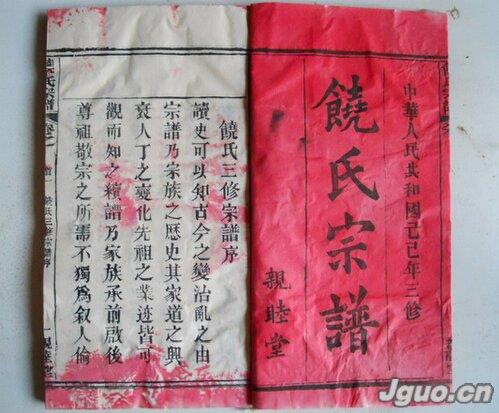 中華人民共和國己己年三修
饒氏宗譜
親睦堂
饒氏三修宗譜序
讀史可以知古今之變治亂之由
宗譜乃宗族之歷史其家道之興
衰人丁之變化先祖之業迹皆可
觀而知之續譜乃家族承前啟後
尊祖敬宗之所需不獨為叙人倫
氏宗譜
卷之一
饒氏三修宗譜序
親睦堂
Jguo.cn